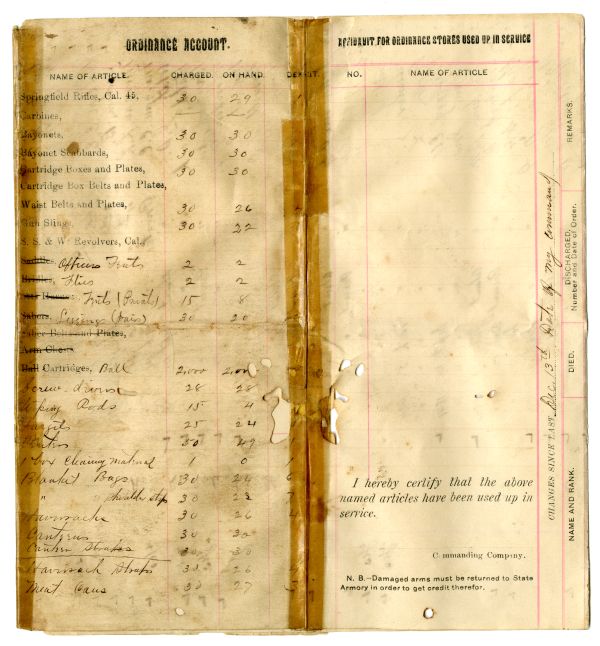 ORDINANCE ACCOUNT.
NAME OF ARTICLE. CHARGED. ON HAND.
Springfield Rifles, Cal. 45, 30 29 1
Carbines, — —
Bayonets, 30 30
Bayonet Scabbards, 30 30
Cartridge Boxes and Plates, 30 30
Cartridge Box Belts and Plates,
Waist Belts and Plates, 30 26
Gun Slings, 30 22
S. S. & W. Revolvers, Cal.,
Saddles, Officers Tents 2 2
Bridles, Flies 2 2
Tents (Privats) 15 8
Sabers, Legings (Pairs) 30 20
Saber Belts and Plates,
Arm Chests
Ball Cartridges, Ball 2,000 2,000
Screw-drivers 28 28
Rods 15 4
25 24
50 49 1
1 box Cleaning material 1 0 1
Blanket Bags 30 24 6
" Shoulder 30 23
Haversacks 30 26 4
Canteens 30 30
Canteen Straps 30 30
Haversack Straps 30 26
Meat Cans 30 27 3
AFFIDAVIT FOR ORDINANCE STORES USED UP IN SERVICE
NO. NAME OF ARTICLE
I hereby certify that the above
named articles have been used up in
service.
Commanding Company.
N. B.—Damaged arms must be returned to State
Armory in order to get credit therefor.
CHANGES SINCE LAST Dec. 13th Date of my command
NAME AND RANK.
DIED.
DISCHARGED,
Number and Date of Order.
REMARKS.